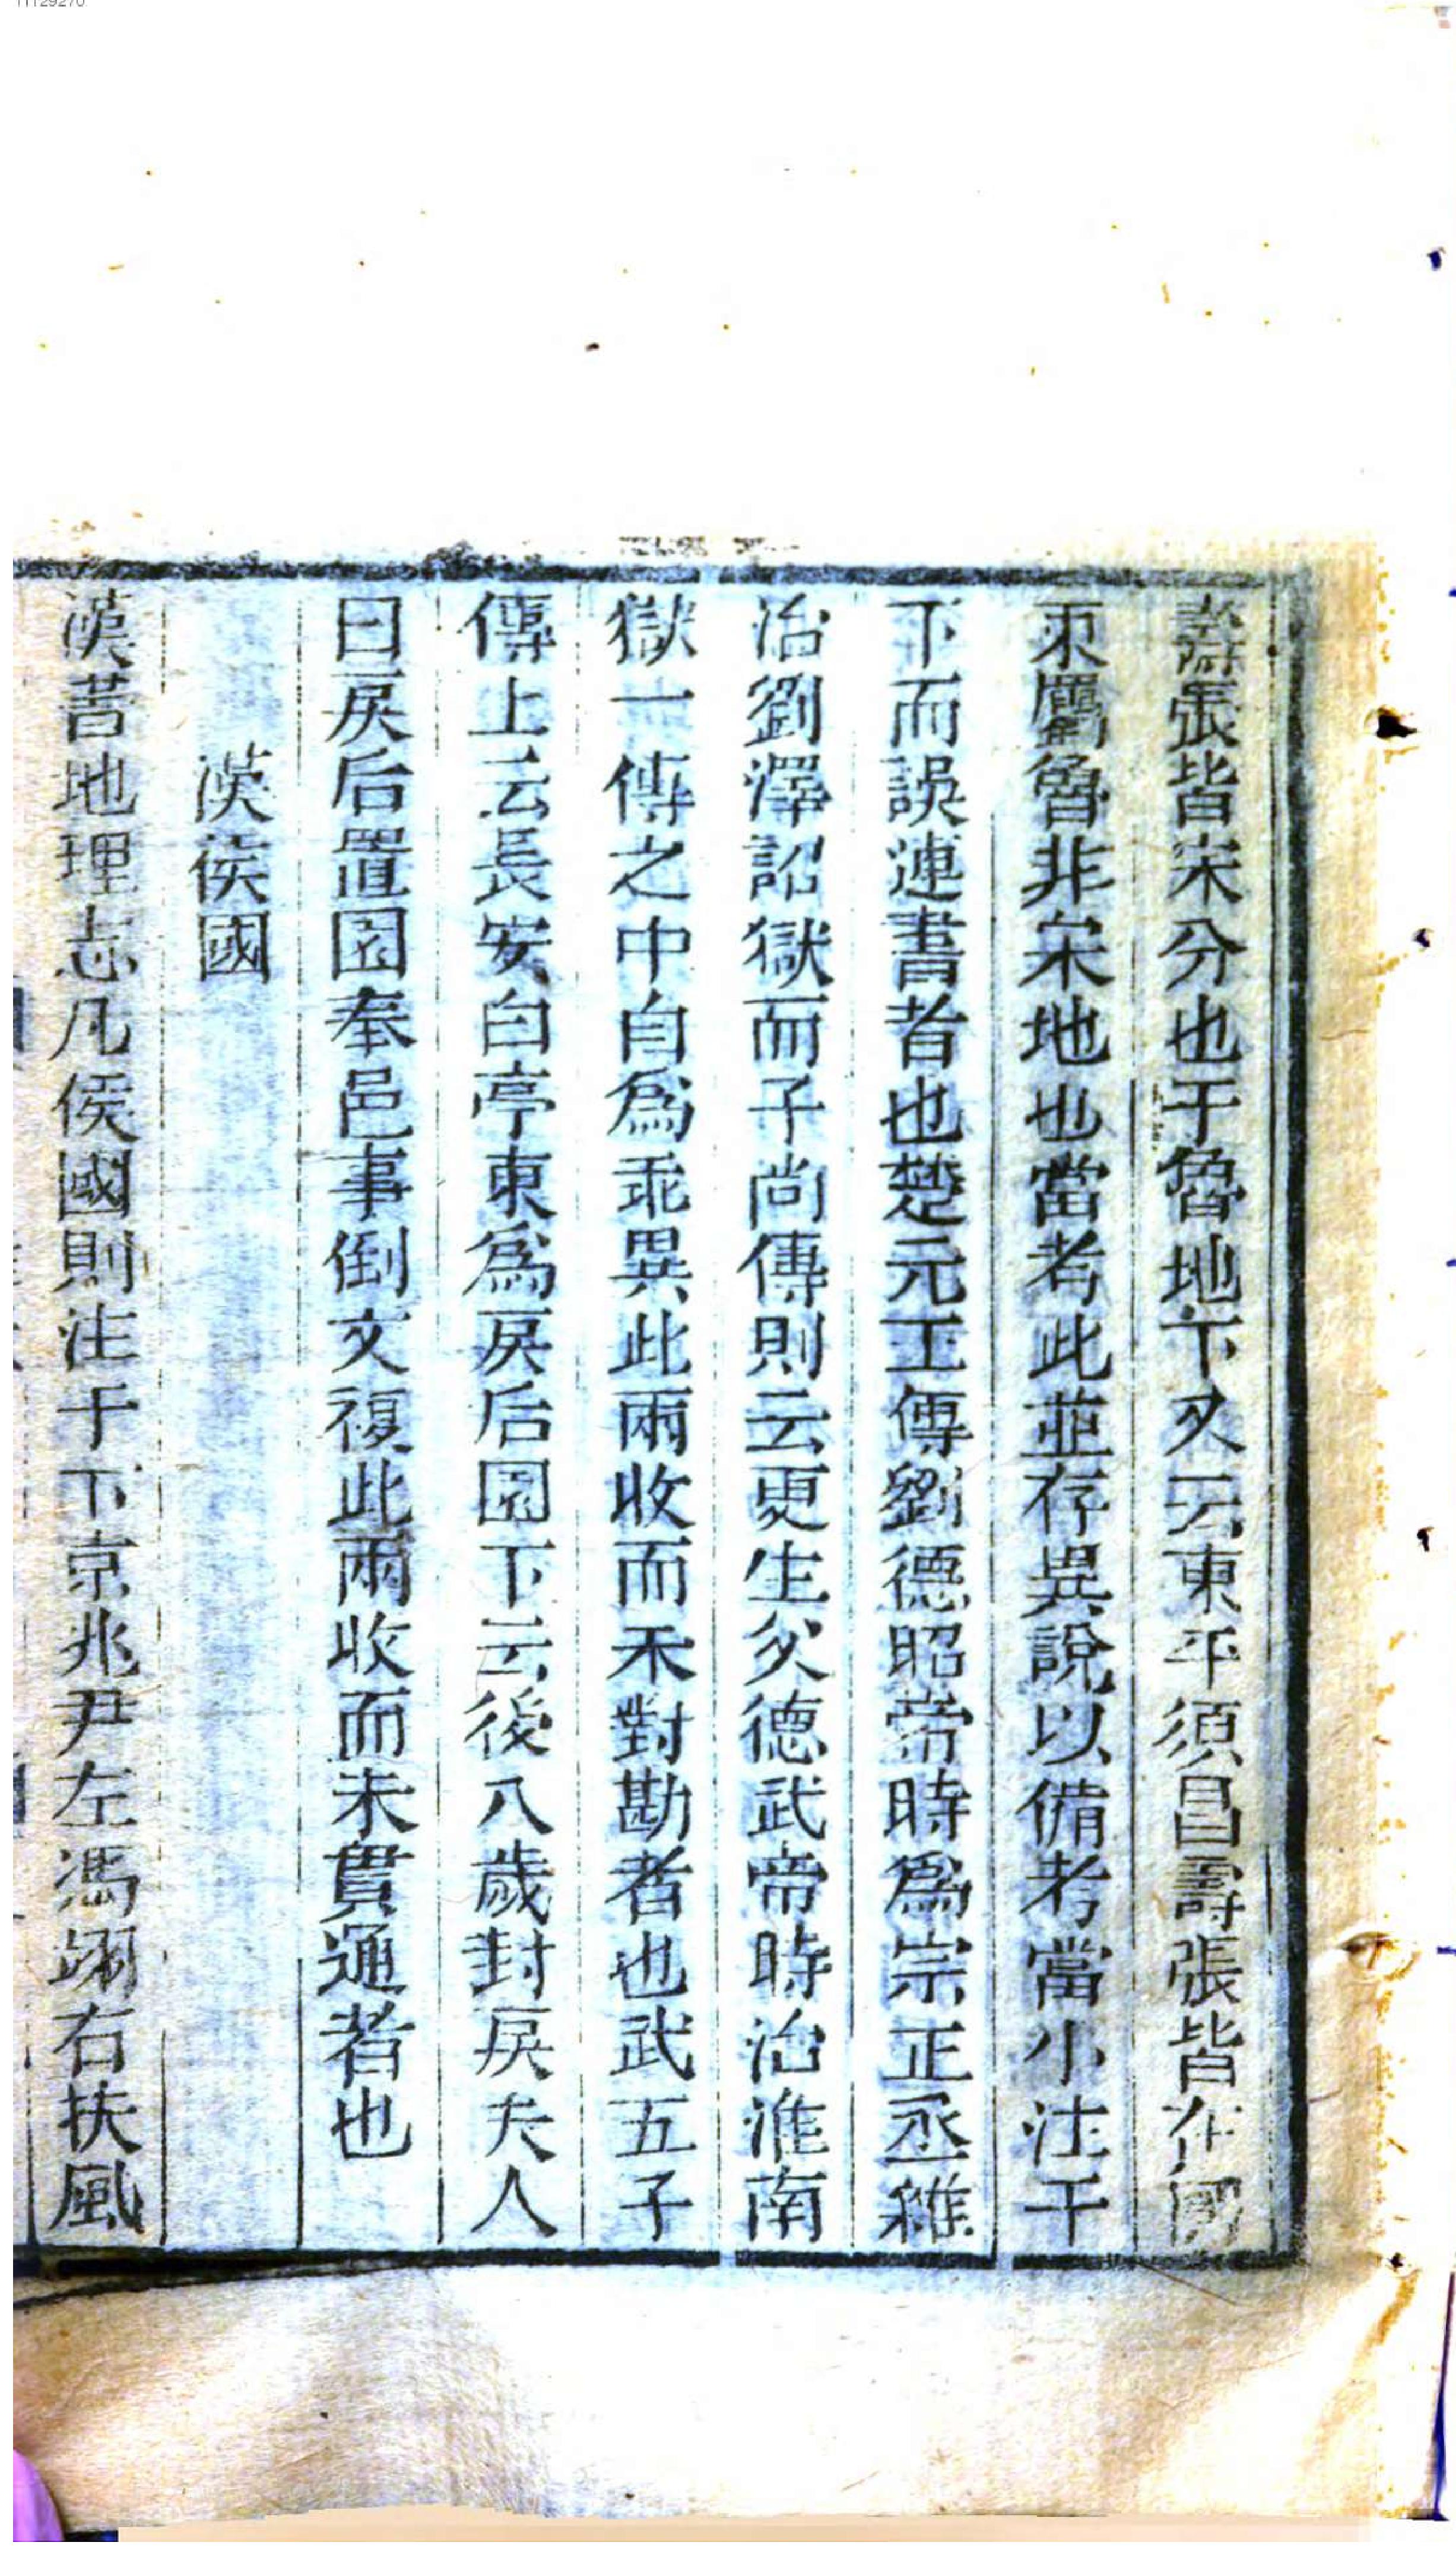 壽張皆宋分也于魯地下又云東平須昌壽張皆在濟
東屬魯非宋地也當考此並存異說以備考當小注于
下而誤連書者也楚元王傳劉德昭帝時爲宗正丞雜
治劉澤詔獄而子尚傳則云更生父德武帝時治淮南
獄一傳之中自爲乖異此兩收而不對勘者也武五子
傳上云長安白亭東爲戾后園下云後八歲封戾夫人
曰戾后置園奉邑事倒文複此兩收而未貫通者也
漢侯國
漢書地理志凡侯國則注于下京兆尹左馮翊右扶風